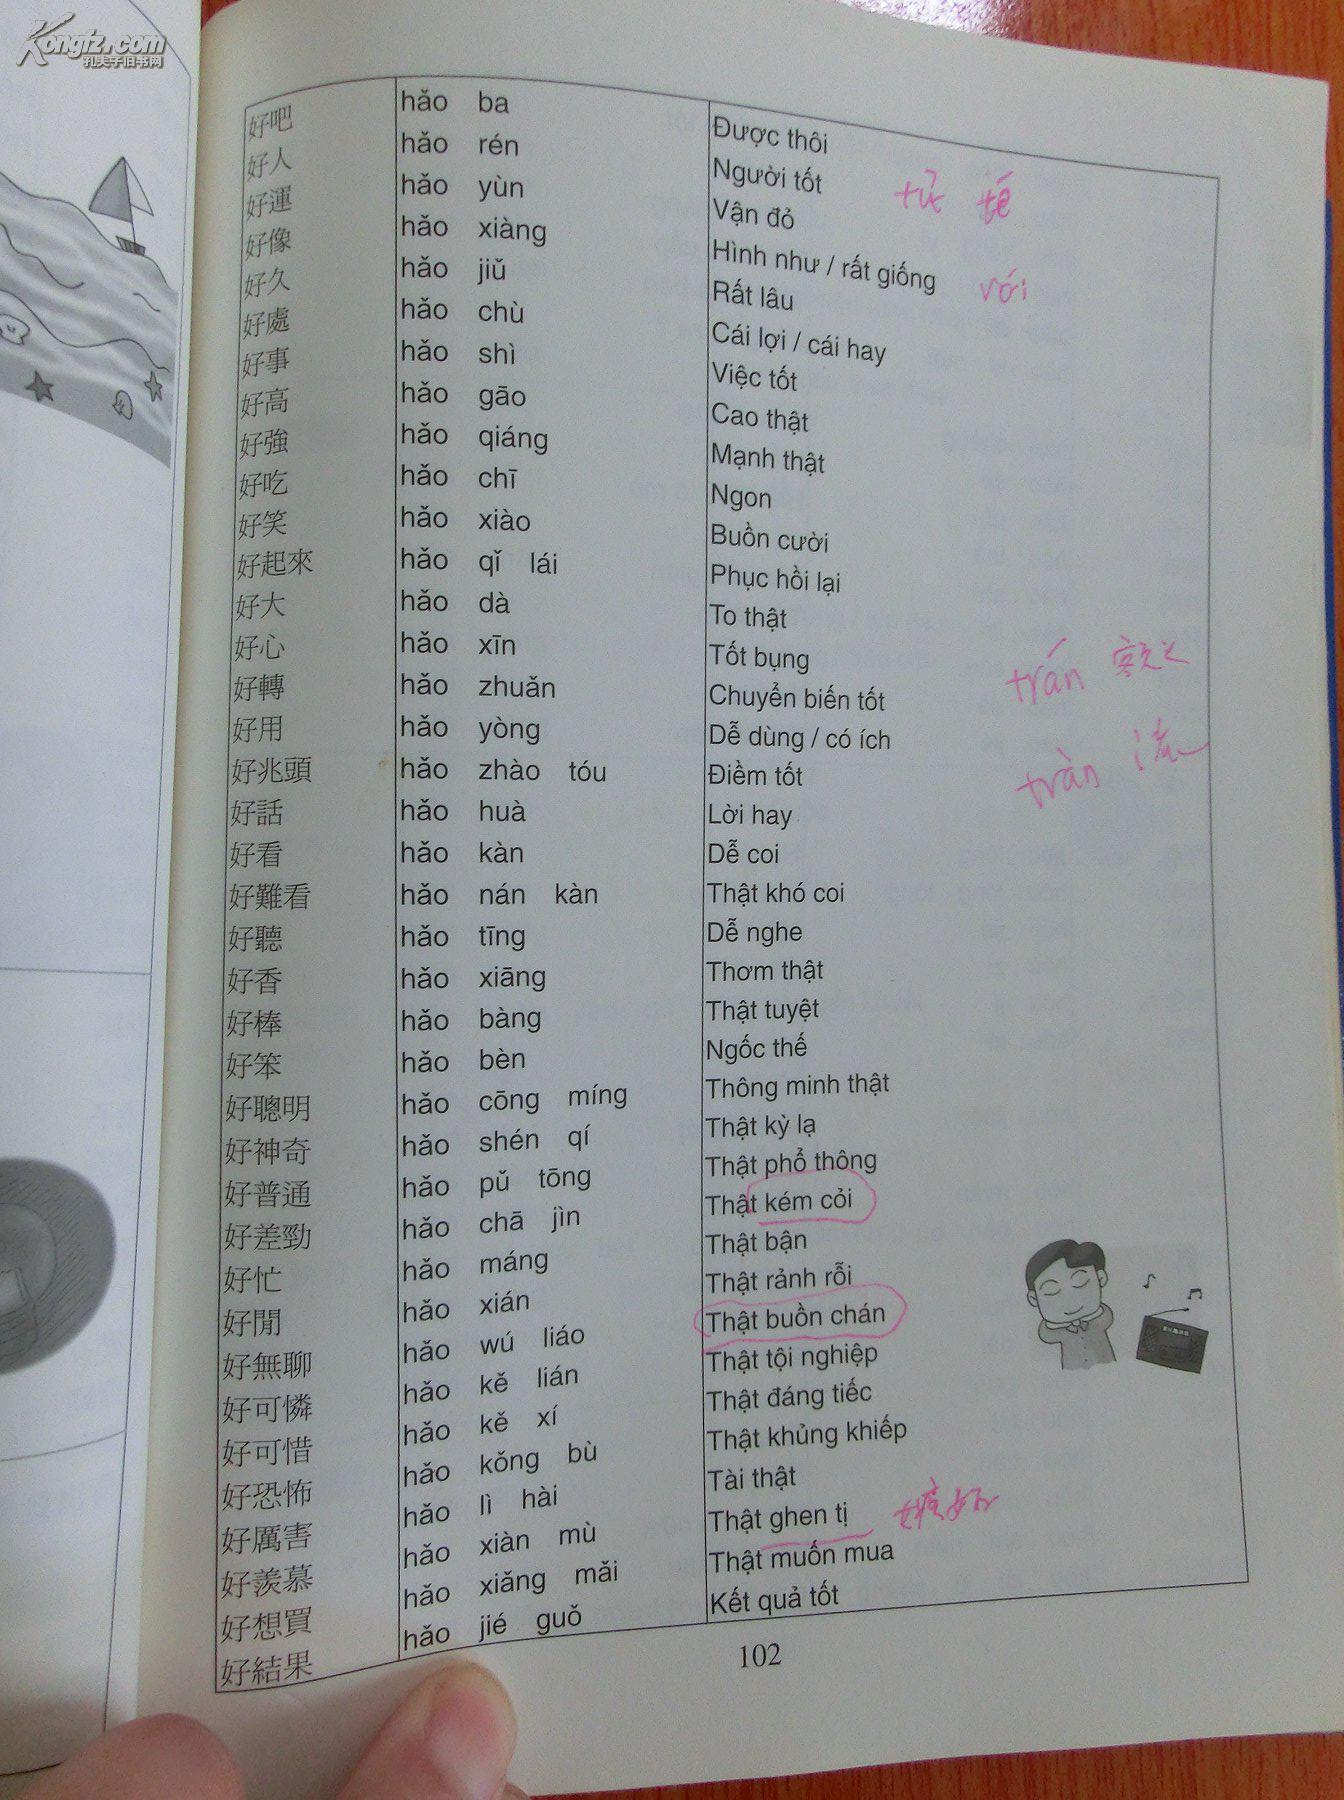 Kongfz.com
孔夫子旧书网
好吧 hǎo ba Được thôi
好人 hǎo rén Người tốt tử tế
好運 hǎo yùn Vận đỏ
好像 hǎo xiàng Hình như / rất giống với
好久 hǎo jiǔ Rất lâu
好處 hǎo chù Cái lợi / cái hay
好事 hǎo shì Việc tốt
好高 hǎo gāo Cao thật
好強 hǎo qiáng Mạnh thật
好吃 hǎo chī Ngon
好笑 hǎo xiào Buồn cười
好起來 hǎo qǐ lái Phục hồi lại
好大 hǎo dà To thật
好心 hǎo xīn Tốt bụng
好轉 hǎo zhuǎn Chuyển biến tốt trán
好用 hǎo yòng Dễ dùng / có ích
好兆頭 hǎo zhào tóu Điềm tốt tràn 流
好話 hǎo huà Lời hay
好看 hǎo kàn Dễ coi
好難看 hǎo nán kàn Thật khó coi
好聽 hǎo tīng Dễ nghe
好香 hǎo xiāng Thơm thật
好棒 hǎo bàng Thật tuyệt
好笨 hǎo bèn Ngốc thế
好聰明 hǎo cōng míng Thông minh thật
好神奇 hǎo shén qí Thật kỳ lạ
好普通 hǎo pǔ tōng Thật phổ thông
好差勁 hǎo chā jìn Thật kém cỏi
好忙 hǎo máng Thật bận
好閒 hǎo xián Thật rảnh rỗi
好無聊 hǎo wú liáo Thật buồn chán
好可憐 hǎo kě lián Thật tội nghiệp
好可惜 hǎo kě xí Thật đáng tiếc
好恐怖 hǎo kǒng bù Thật khủng khiếp
好厲害 hǎo lì hài Tài thật
好羨慕 hǎo xiàn mù Thật ghen tị 嫉妒
好想買 hǎo xiǎng mǎi Thật muốn mua
好結果 hǎo jié guǒ Kết quả tốt
102